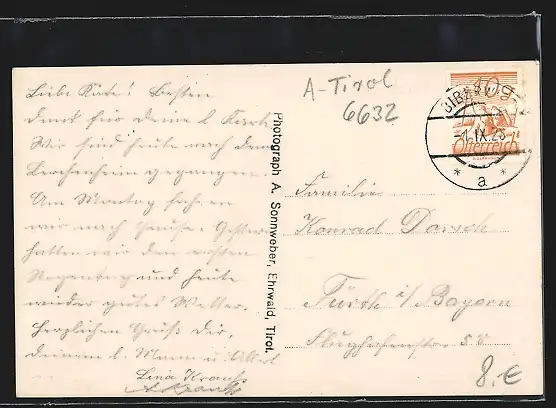 Liebe Käte! Besten
Dank für deine l. Karte.
Wir sind heute nach dem
gegangen.
Am Montag fahren
wir nach Hause. Gestern
hatten wir den ersten
Regentag und heute
wieder gutes Wetter.
Herzlichen Gruß dir,
deinem l. Mann u. Albert
Lina Krauss
A. Krauss
Photograph A. Sonnweber, Ehrwald, Tirol.
A-Tirol
6632
10g
Österreich
-1.IX.26
* a *
Familie
Konrad Dorsch
Fürth i/Bayern
8.€